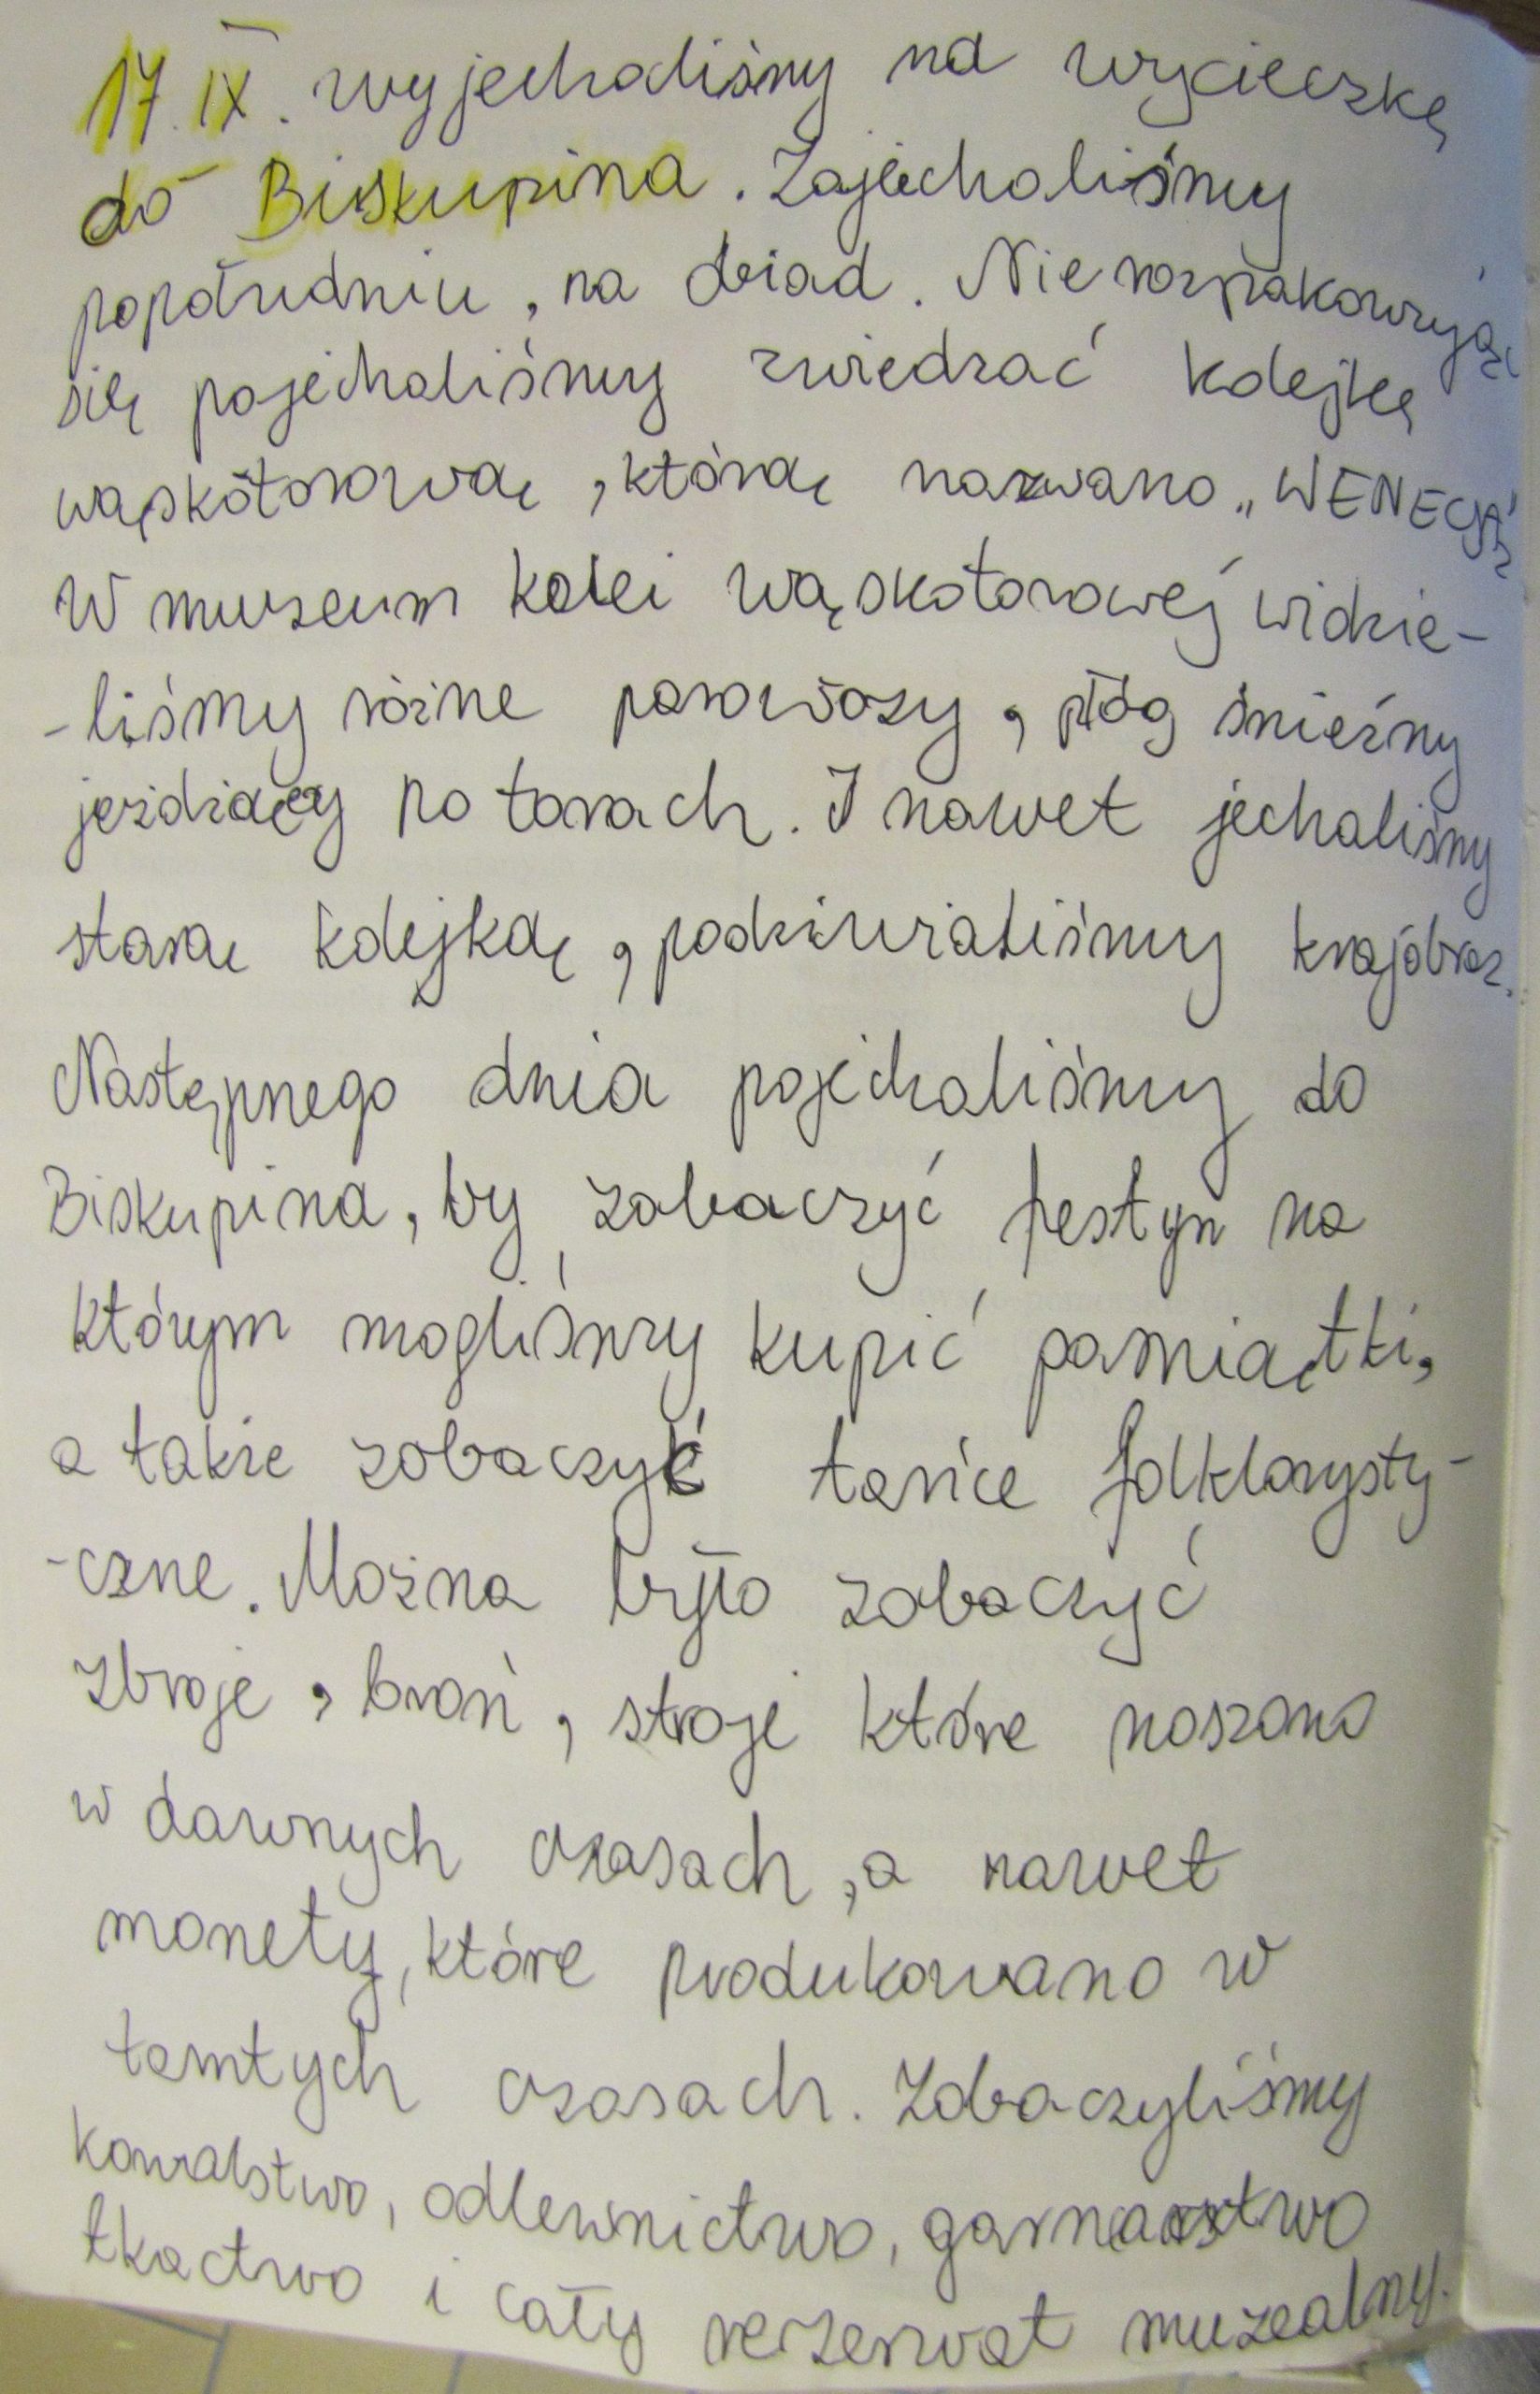 17. IX. wyjechaliśmy na wycieczkę
do Biskupina. Zajechaliśmy
popołudniu, na obiad. Nie rozpakowując
się pojechaliśmy zwiedzać kolejkę
wąskotorową, którą nazwano „WENECJĄ”
W muzeum kolei wąskotorowej widzie-
-liśmy różne parowozy, pług śnieżny
jeżdżący po torach. I nawet jechaliśmy
starą kolejką, podziwialiśmy krajobraz.
Następnego dnia pojechaliśmy do
Biskupina, by zobaczyć festyn na
którym mogliśmy kupić pamiątki,
a także zobaczyć tańce folklorysty-
-czne. Można było zobaczyć
zbroje, broń, stroje które noszono
w dawnych czasach, a nawet
monety, które produkowano w
tamtych czasach. Zobaczyliśmy
kowalstwo, odlewnictwo, garncarstwo
tkactwo i cały rezerwat muzealny.